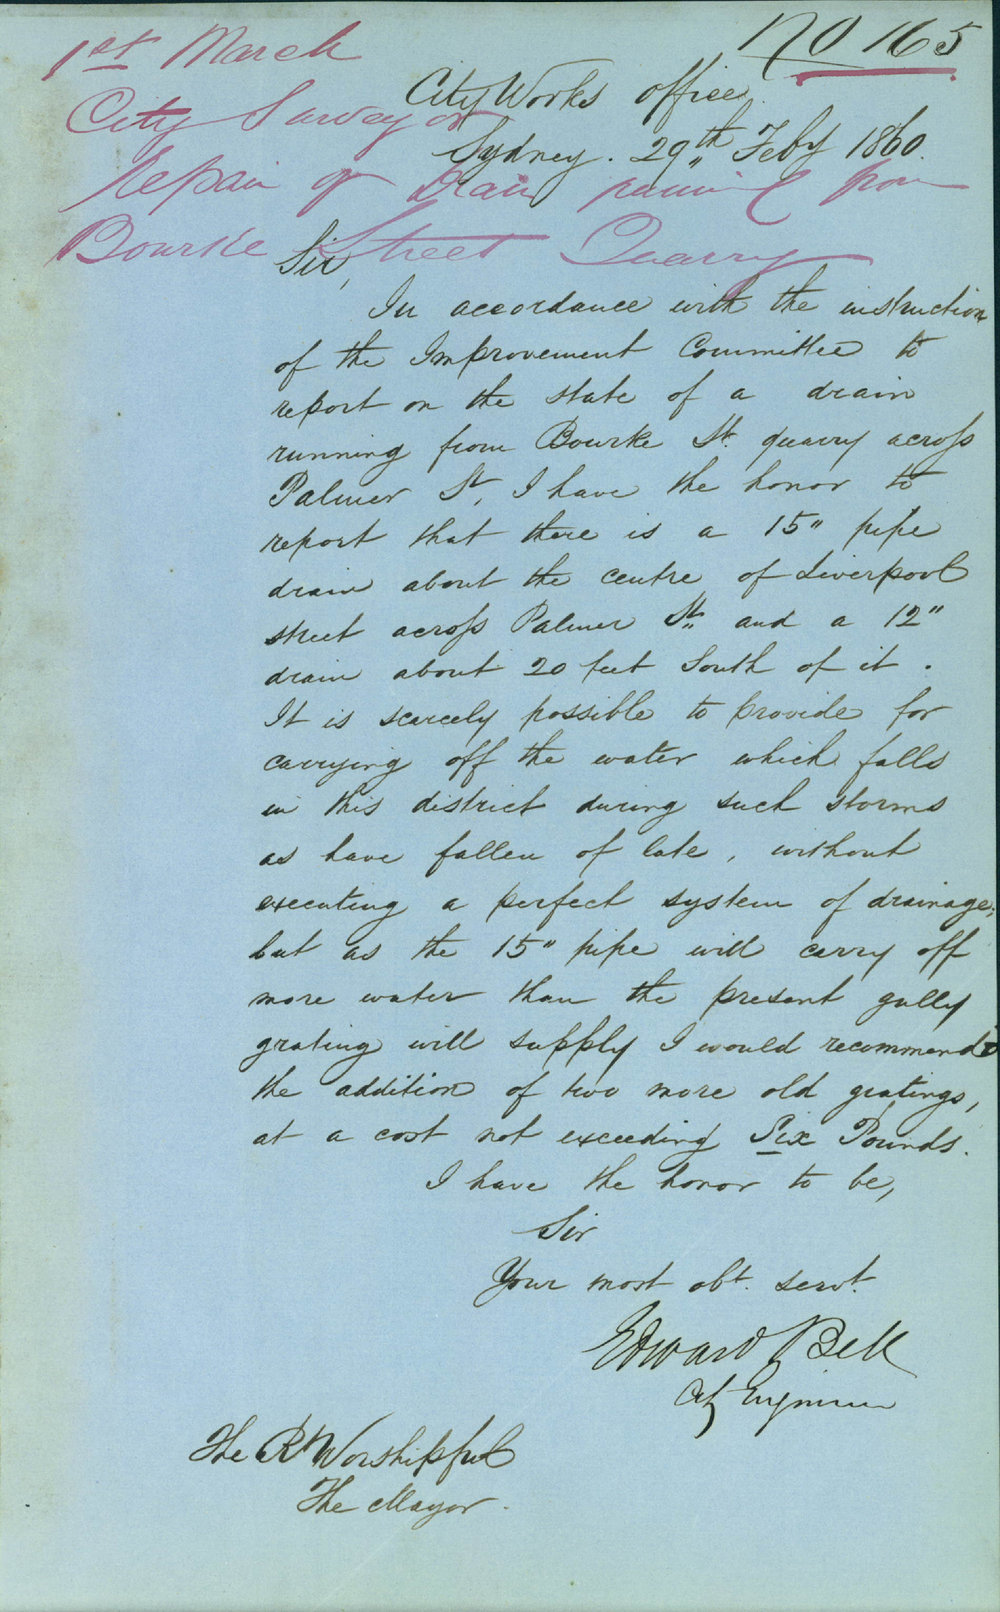 No 165
1st March
City Surveyor
Repair of Drain running from
Bourke Street Quarry
City Works Office
Sydney. 29th Feby 1860.
Sir,
In accordance with the instruction
of the Improvement Committee to
report on the state of a drain
running from Bourke St. quarry across
Palmer St, I have the honor to
report that there is a 15" pipe
drain about the centre of Liverpool
street across Palmer St. and a 12"
drain about 20 feet South of it.
It is scarcely possible to provide for
carrying off the water which falls
in this district during such storms
as have fallen of late, without
executing a perfect system of drainage;
but as the 15" pipe will carry off
more water than the present gully
grating will supply I would recommend
the addition of two more old gratings,
at a cost not exceeding Six Pounds.
I have the honor to be,
Sir
Your most obt. servt.
Edward Bell
City Engineer
The Rt Worshipful
The Mayor.